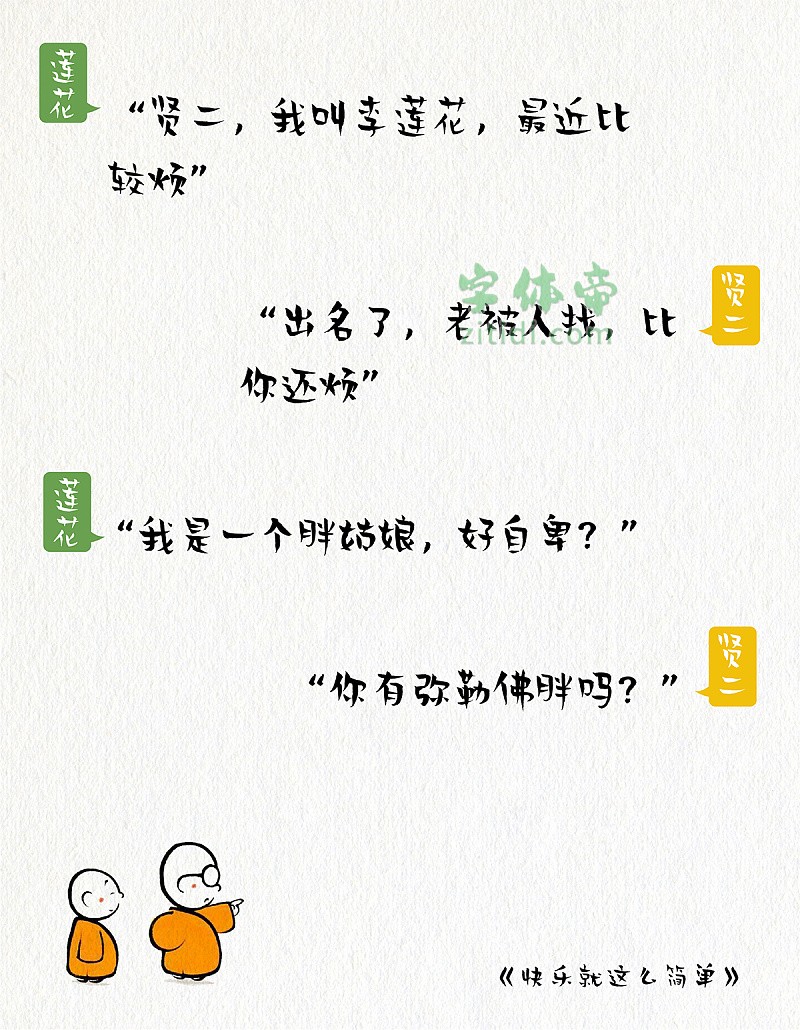 莲花
“贤二，我叫李莲花，最近比
较烦”
字体帝
zitidi.com
贤二
“出名了，老被人找，比
你还烦”
莲花
“我是一个胖姑娘，好自卑？”
贤二
“你有弥勒佛胖吗？”
《快乐就这么简单》